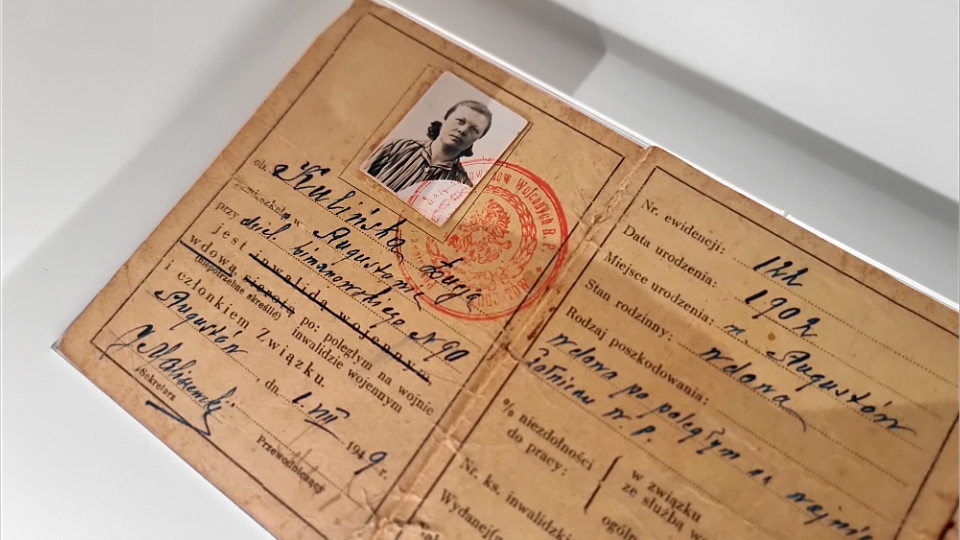 ob. Kulińska Łucja
zamieszkała w Augustowie
przy
jest inwalidą wojennym
wdową, sierotą po: poległym na wojnie
(niepotrzebne skreślić) inwalidzie wojennym
i członkiem Związku.
Augustów, dn. 1. VIII 1949 r.
Sekretarz
Przewodniczący
Wojennych R.P.
Nr. ewidencji: 122
Data urodzenia: 1902
Miejsce urodzenia: m. Augustów
Stan rodzinny: wdowa
Rodzaj poszkodowania:
wdowa po poległym na wojnie
żołnierzu W. P.
% niezdolności
do pracy:
w związku
ze służbą
ogóln
Nr. ks. inwalidzki
Wydanej